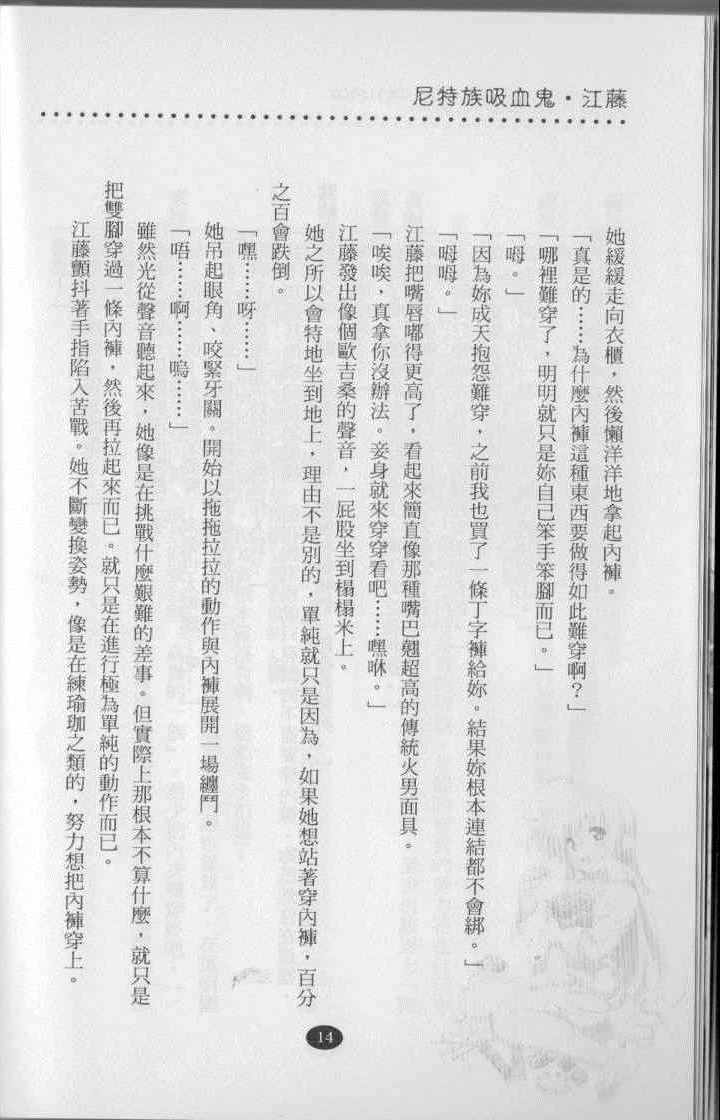 尼特族吸血鬼・江藤
她緩緩走向衣櫃，然後懶洋洋地拿起內褲。
「真是的……為什麼內褲這種東西要做得如此難穿啊？」
「哪裡難穿了，明明就只是妳自己笨手笨腳而已。」
「呣。」
「因為妳成天抱怨難穿，之前我也買了一條丁字褲給妳。結果妳根本連結都不會綁。」
「呣呣。」
江藤把嘴唇嘟得更高了，看起來簡直像那種嘴巴翹超高的傳統火男面具。
「唉唉，真拿你沒辦法。妾身就來穿穿看吧……嘿咻。」
江藤發出像個歐吉桑的聲音，一屁股坐到榻榻米上。
她之所以會特地坐到地上，理由不是別的，單純就只是因為，如果她想站著穿內褲，百分
之百會跌倒。
「嘿……呀……」
她吊起眼角、咬緊牙關。開始以拖拖拉拉的動作與內褲展開一場纏鬥。
「唔……啊……嗚……」
雖然光從聲音聽起來，她像是在挑戰什麼艱難的差事。但實際上那根本不算什麼，就只是
把雙腳穿過一條內褲，然後再拉起來而已。就只是在進行極為單純的動作而已。
江藤顫抖著手指陷入苦戰。她不斷變換姿勢，像是在練瑜珈之類的，努力想把內褲穿上。
14